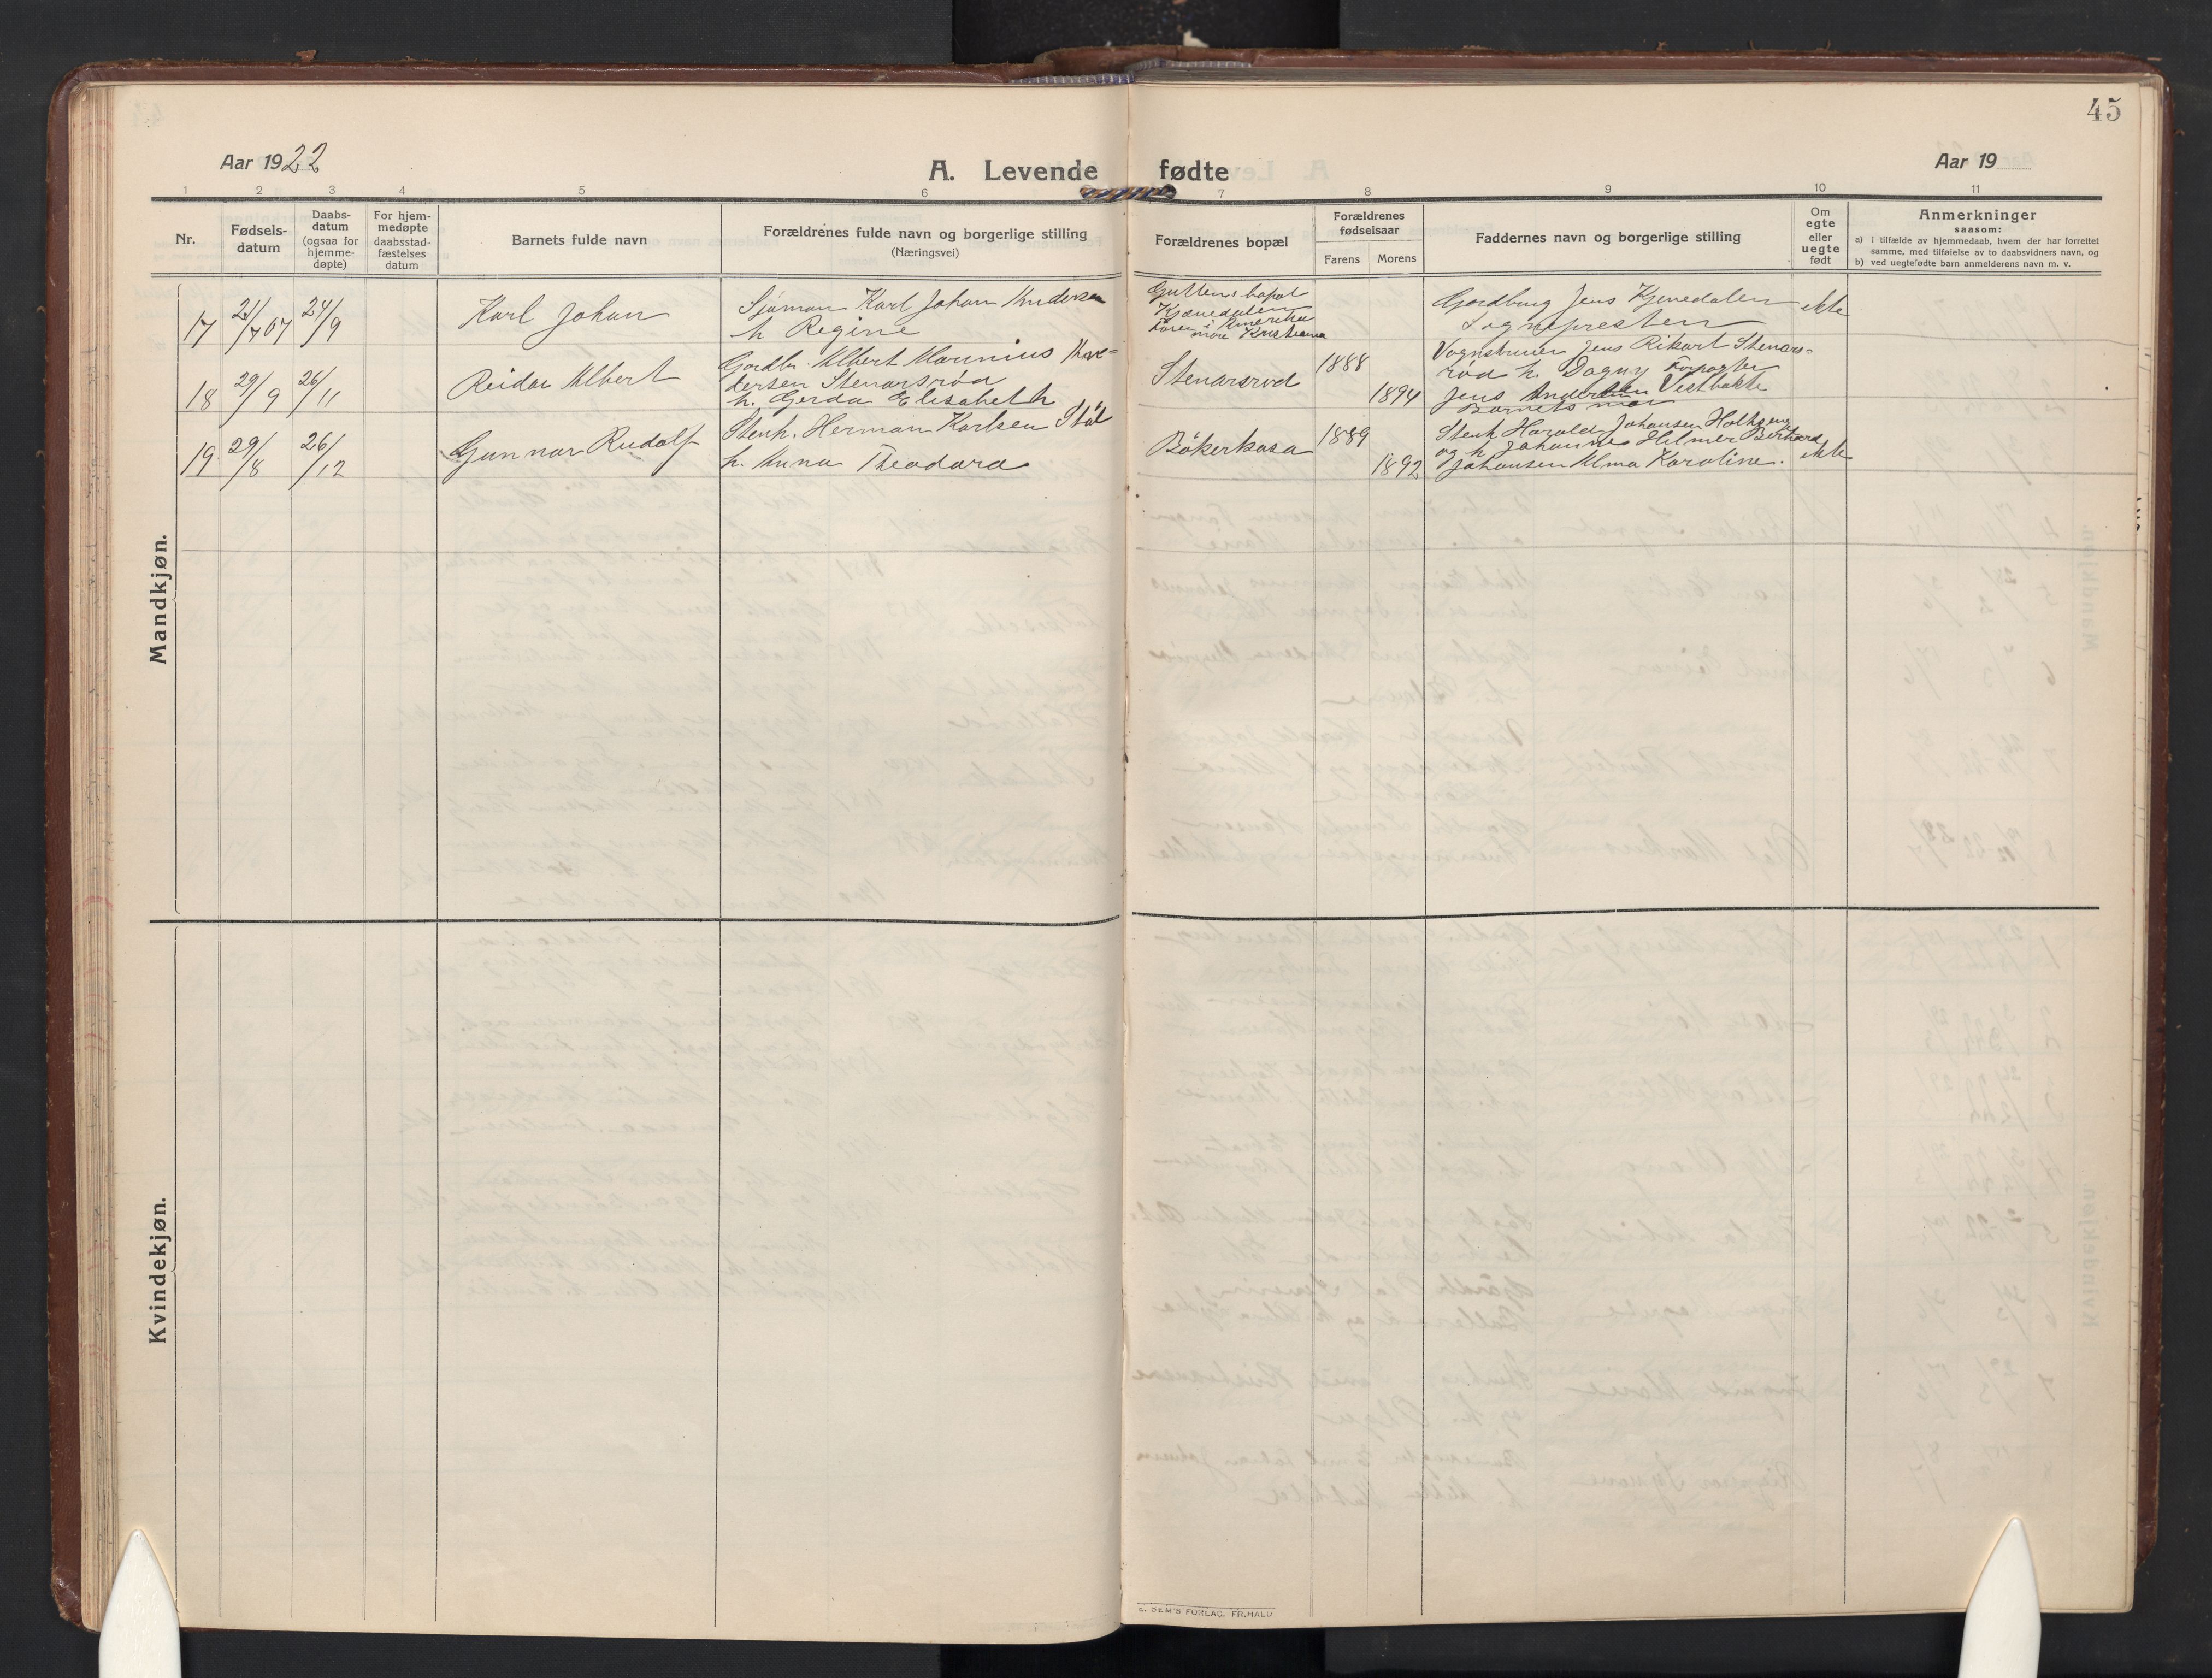 45
Aar 1922
A. Levende fødte
Aar 19
1 2 3 4 5 6 7 8 9 10 11
Nr.
Fødsels-
datum
Daabs-
datum
(ogsaa for
hjemme-
døpte)
For hjem-
medøpte
daabsstad-
fæstelses
datum
Barnets fulde navn
Forældrenes fulde navn og borgerlige stilling
(Næringsvei)
Forældrenes bopæl
Forældrenes
fødselsaar
Farens Morens
Faddernes navn og borgerlige stilling
Om
egte
eller
uegte
født
Anmerkninger
saasom:
a) i tilfælde av hjemmedaab, hvem der har forrettet
samme, med tilføielse av to daabsvidners navn, og
b) ved uegtefødte barn anmelderens navn m. v.
Mandkjøn.
17
21/7 07
24/9
Karl Johan
Sjöman Karl Johan Andersen
h Regine
Guttens bopel
Kjænedalen
Faren i Amerika
more Kristiania
Gardbrug Jens Kjenedalen
Sognepresten
ekte
18
29/9
26/11
Reidar Albert
Gardbr. Albert Marinius
dersen Stenarsröd
h. Gerda Elisabeth
Stenarsrød
1888
1894
Vognstruer Jens Rikart Stenars-
röd h. Dagny Forpagter
Jens Andersen Vestbakke
Barnets mor
19
29/8
26/12
Gunnar Rudolf
Stenh. Herman Karlsen Stöl
h. Anna Theodora
Bökerkasa
1889
1892
Stenh Harald Johansen Holtseng
og h Johanne Hilmer Berhard
Johansen Alma Karoline.
ekte
Kvindekjøn.
E. SEM'S FORLAG, FR.HALD